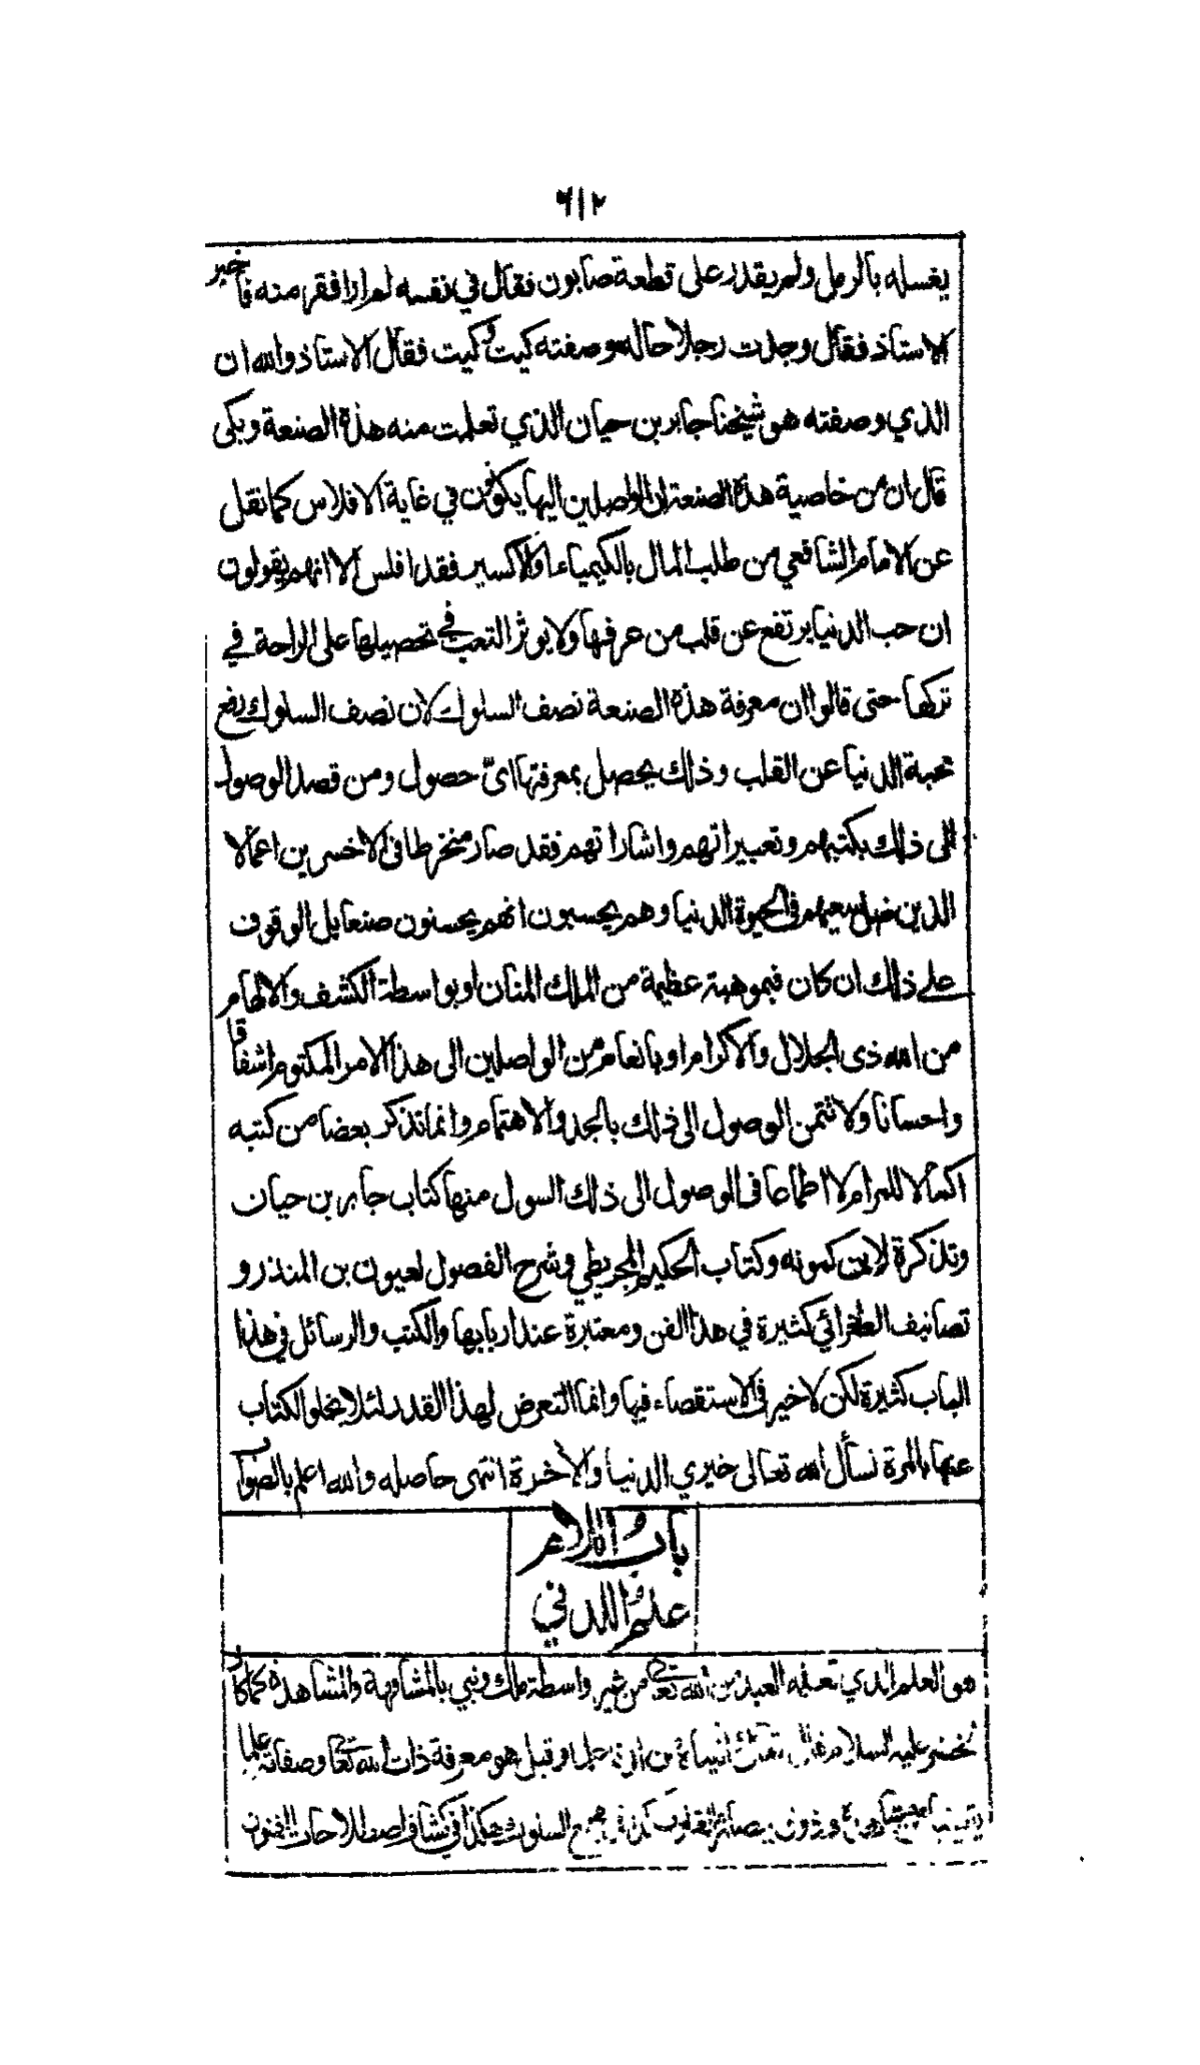 ٦١٢
يغسله بالرمل ولم يقدر على قطعة صابون فقال في نفسه لم ار افقر منه فاخبر
الاستاذ فقال وجدت رجلا حاله وصفته كيت وكيت فقال الاستاذ والله ان
الذي وصفته هو شيخنا جابر بن حيان الذي تعلمت منه هذه الصنعة وبكى
قال ان من خاصية هذه الصنعة ان الواصلين اليها يكونون في غاية الافلاس كما نقل
عن الامام الشافعي من طلب المال بالكيمياء او الاكسير فقد افلس الا انهم يقولون
ان حب الدنيا يرتفع عن قلب من عرفها ولا يوثر التعب في تحصيلها على الراحة في
تركها حتى قالوا ان معرفة هذه الصنعة نصف السلوك لان نصف السلوك رفع
محبة الدنيا عن القلب وذلك يحصل بمعرفتها اىّ حصول ومن قصد الوصول
الى ذلك بكتبهم وتعبيراتهم واشاراتهم فقد صار منخرطا فى الاخسرين اعمالا
الذين ضل سعيهم فى الحيوة الدنيا وهم يحسبون انهم يحسنون صنعا بل الوقوف
على ذلك ان كان فبموهبة عظيمة من الملك المنان او بواسطة الكشف والالهام
من الله ذى الجلال والاكرام او بانعام من الواصلين الى هذا الامر المكتوم اشفاقا
واحسانا ولا تتمن الوصول الى ذلك بالجد والاهتمام وانما نذكر بعضا من كتبه
اكمالا للمرام لا اطماعا فى الوصول الى ذلك السول منها كتاب جابر بن حيان
وتذكرة لابن كمونه وكتاب الحكيم المجريطي وشرح الفصول لعيون بن المنذر و
تصانيف الطغرائي كثيرة في هذا الفن ومعتبرة عند اربابها والكتب والرسائل في هذا
الباب كثيرة لكن لا خير فى الاستقصاء فيها وانما التعرض لهذا القدر لئلا يخلو الكتاب
عنها بالمرة نسأل الله تعالى خيري الدنيا والآخرة انتهى حاصله والله اعلم بالصواب
باب اللام
علم اللدني
هو العلم الذي تعلمه العبد من الله تعالى من غير واسطة ملك ونبي بالمشافهة والمشاهدة كما كان
لخضر عليه السلام قال تعالى آتيناه من لدنا علما وقيل هو معرفة ذات الله تعالى وصفاته علما
يقينيا من مشاهدة وذوق ببصائر القلوب كذا في مجمع السلوك هكذا في كشاف اصطلاحات الفنون